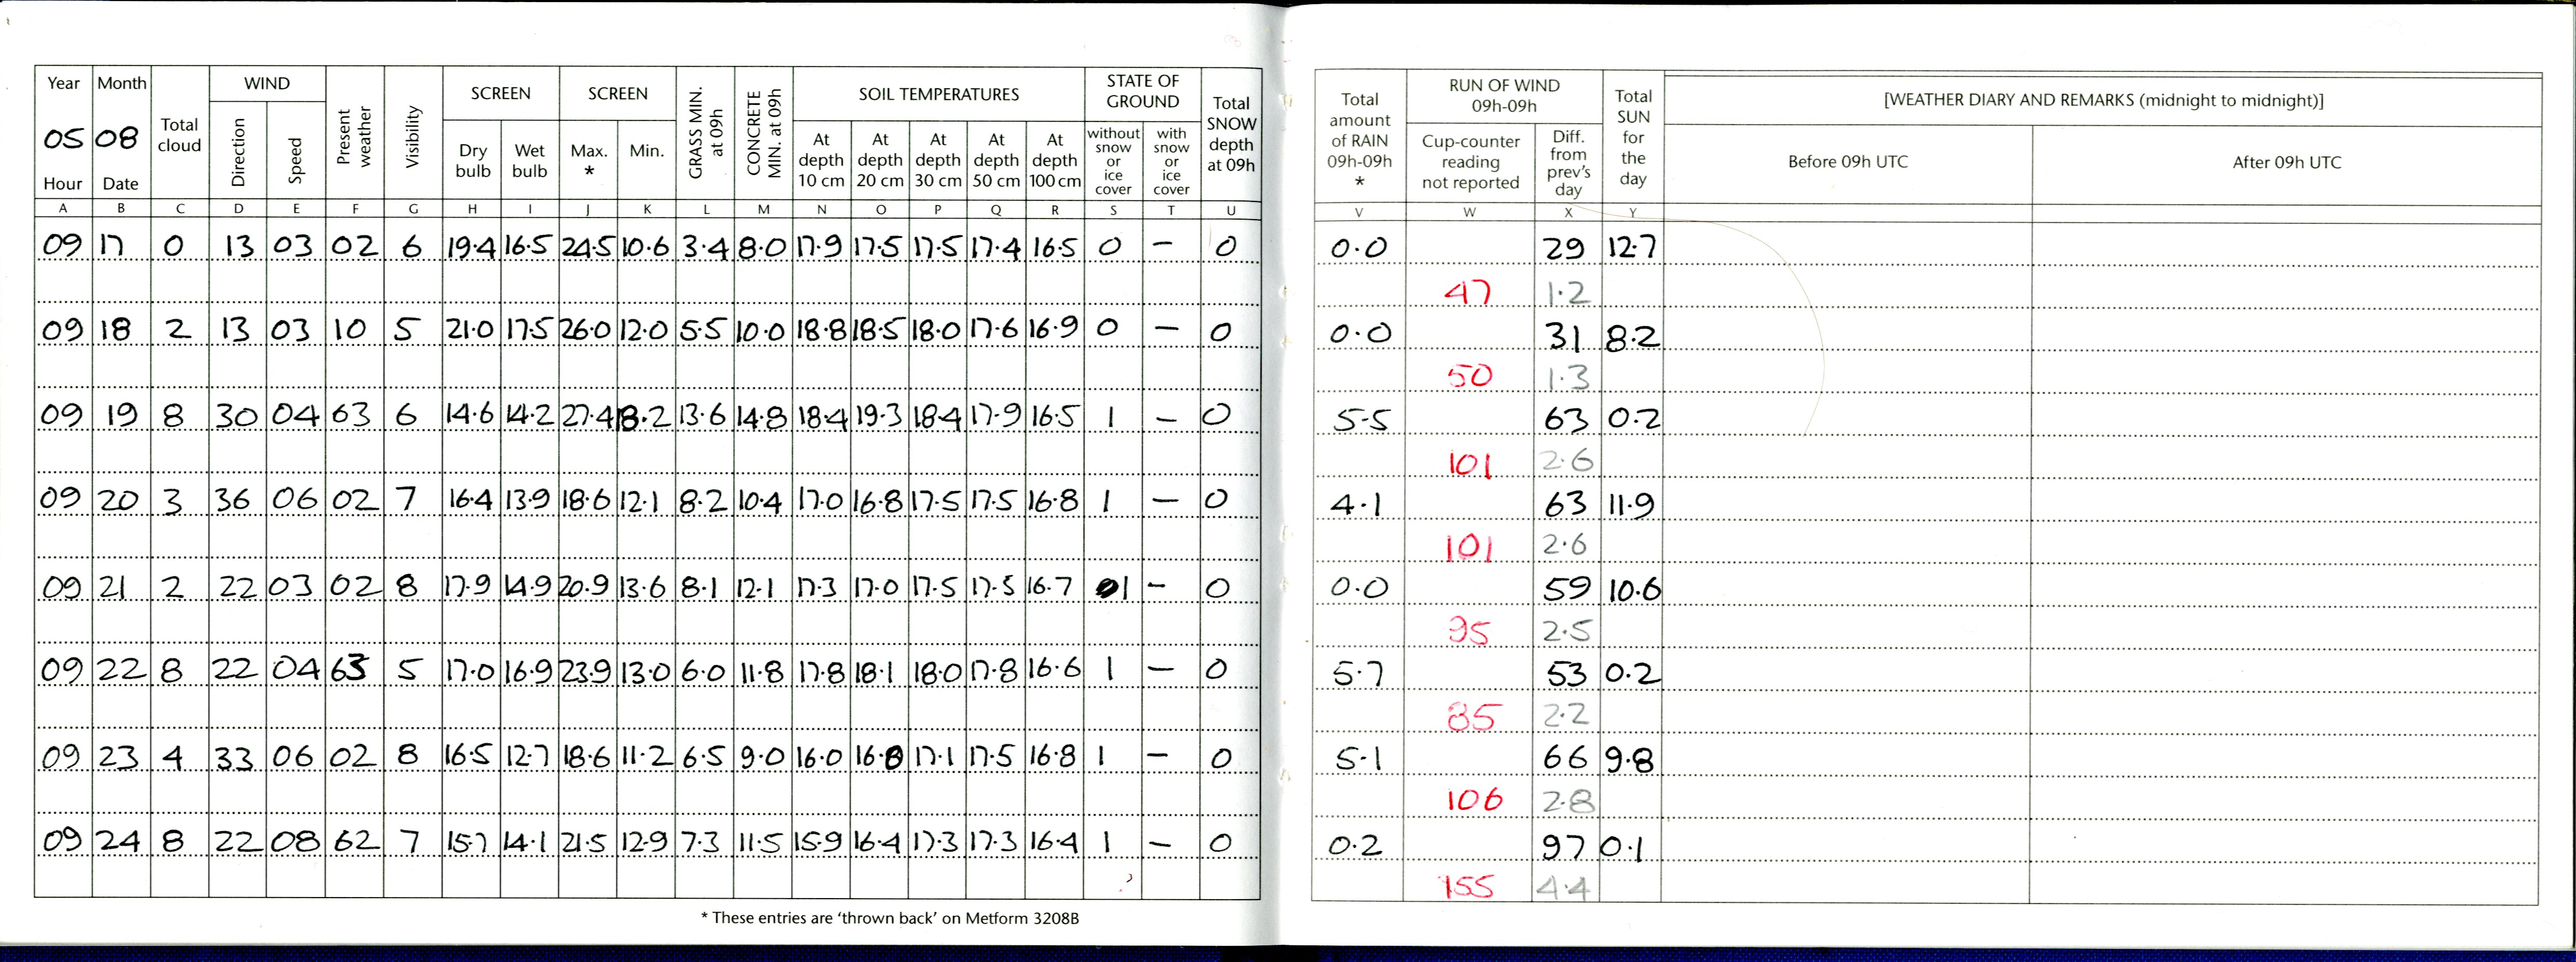 Year Month Total cloud WIND Present weather Visibility SCREEN SCREEN GRASS MIN. at 09h CONCRETE MIN. at 09h SOIL TEMPERATURES STATE OF GROUND Total SNOW depth at 09h
05 08 Direction Speed Dry bulb Wet bulb Max. * Min. At depth 10 cm At depth 20 cm At depth 30 cm At depth 50 cm At depth 100 cm without snow or ice cover with snow or ice cover
Hour Date
A B C D E F G H I J K L M N O P Q R S T U
09 17 0 13 03 02 6 19.4 16.5 24.5 10.6 3.4 8.0 17.9 17.5 17.5 17.4 16.5 0 — 0
09 18 2 13 03 10 5 21.0 17.5 26.0 12.0 5.5 10.0 18.8 18.5 18.0 17.6 16.9 0 — 0
09 19 8 30 04 63 6 14.6 14.2 27.4 18.2 13.6 14.8 18.4 19.3 18.4 17.9 16.5 1 — 0
09 20 3 36 06 02 7 16.4 13.9 18.6 12.1 8.2 10.4 17.0 16.8 17.5 17.5 16.8 1 — 0
09 21 2 22 03 02 8 17.9 14.9 20.9 13.6 8.1 12.1 17.3 17.0 17.5 17.5 16.7 1 - 0
09 22 8 22 04 63 5 17.0 16.9 23.9 13.0 6.0 11.8 17.8 18.1 18.0 17.8 16.6 1 — 0
09 23 4 33 06 02 8 16.5 12.7 18.6 11.2 6.5 9.0 16.0 16.8 17.1 17.5 16.8 1 — 0
09 24 8 22 08 62 7 15.7 14.1 21.5 12.9 7.3 11.5 15.9 16.4 17.3 17.3 16.4 1 — 0
* These entries are ‘thrown back’ on Metform 3208B
Total amount of RAIN 09h-09h * RUN OF WIND 09h-09h Total SUN for the day [WEATHER DIARY AND REMARKS (midnight to midnight)]
Cup-counter reading not reported Diff. from prev's day Before 09h UTC After 09h UTC
V W X Y
0.0 29 12.7
47 1.2
0.0 31 8.2
50 1.3
5.5 63 0.2
101 2.6
4.1 63 11.9
101 2.6
0.0 59 10.6
95 2.5
5.7 53 0.2
85 2.2
5.1 66 9.8
106 2.8
0.2 97 0.1
155 4.4